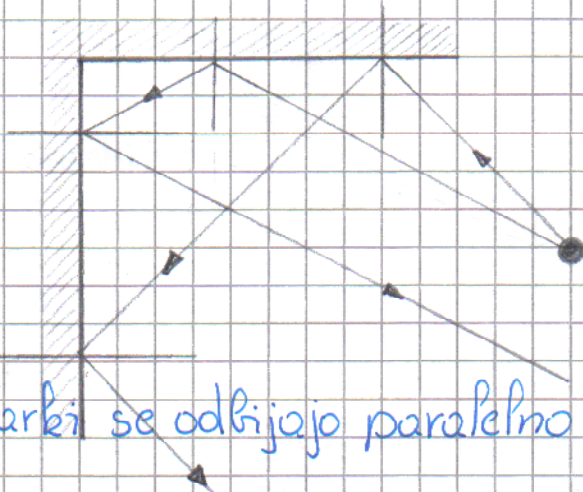 arki se odbijajo paralelno